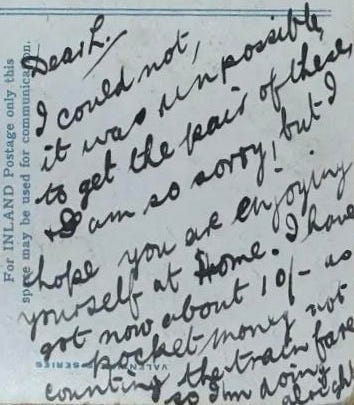 For INLAND Postage only this
space may be used for communication.
Dear L.
I could not,
it was unpossible,
to get the pair of these,
I am so sorry, but I
hope you are enjoying
yourself at Home. I have
got now about 10/- as
pocket money not
counting the train fare
so I'm doing
alright
VALEN SERIES